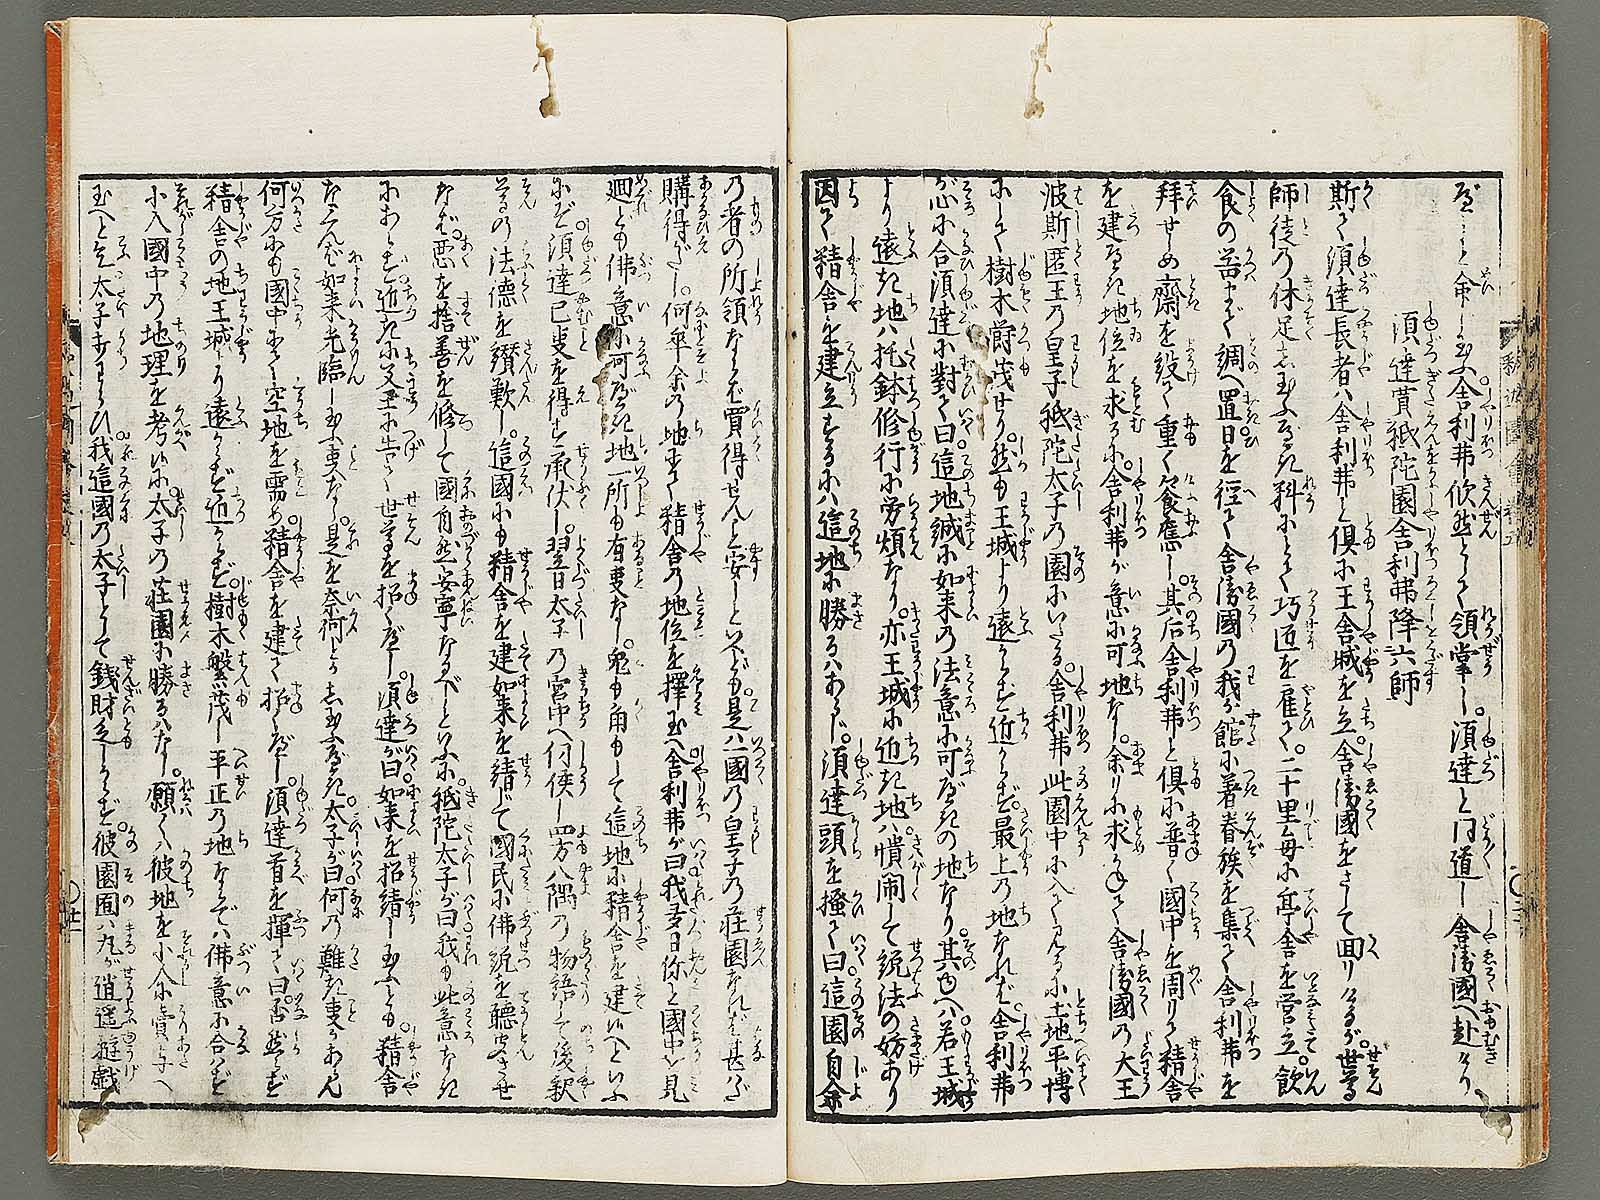 べし と命し玉ふ舎利弗欣然として領掌し。須達と同道し舎衛國へ赴けり
須達買祇陀園舎利弗降六師
斯て須達長者ハ舎利弗と倶に王舎城を立。舎衛國をさして回りけるが。世尊
師徒の休足し玉ふべき料にとて巧匠を雇て。二十里毎に亭舎を営立。飲
食の苦まで調へ置日を径て舎衛國の我が館に着眷族を集て舎利弗を
拜せしめ齋を設て重く饗應し。其后舎利弗と倶に普く國中を周りて精舎
を建べき地位を求るに。舎利弗が意に可地なし。余りに求かねて舎衛國の大王
波斯匿王の皇子祇陀太子の園にいたる。舎利弗此園中に入て見るに土地平博
にして樹木欝茂せり。然も王城より遠からず近からず。最上の地なれば。舎利弗
が心に合須達に對て曰。這地誠に如来の法意に可べきの地なり。其ゆへハ若王城
より遠き地ハ托鉢修行に労煩なり。亦王城に近き地ハ憒閙して説法の妨あり
因て精舎を建立するにハ這地に勝るハあらじ。須達頭を掻て曰這園自余
の者の所領ならば買得せんと安しといへども。是ハ一國の皇子の莊園なれば甚だ
購得がたし。何卒余の地にて精舎の地位を擇玉へ舎利弗が曰我多日你と國中を見
廻ども佛意に可べき地一所も有事なし。兎も角もして這地に精舎を建ゆへといふ
にぞ須達已事を得ず承伏し。翌日太子の宮中へ伺候し四方八隅の物語して後釈
尊の法德を讃歎し。這國にも精舎を建如来を請じて國民に佛説を聴聞させ
なば。悪を捨善を修して國自然安寧なるべしといふに。祇陀太子が曰我も此意なき
にあらず。近きに父王に告て世尊を招くべし。須達が曰。如来を招請し玉ふとも。精舎
なくんば如来光臨し玉ふ事なし。是を奈何とかし玉ふべき。太子が曰何の難き事かあらん
何方にも國中にて空地を需め精舎を建て招くべし。須達首を揮て曰。否然らず
精舎の地王城より遠からず近からず。樹木繁茂し平正の地ならでハ佛意に合ハず
小人國中の地理を考ゆに太子の莊園に勝るハなし。願くハ彼地を小人に賣与へ
玉へと乞。太子打わらひ我這國の太子として錢財乏しからず。彼園囿ハ九が逍遥遊戯